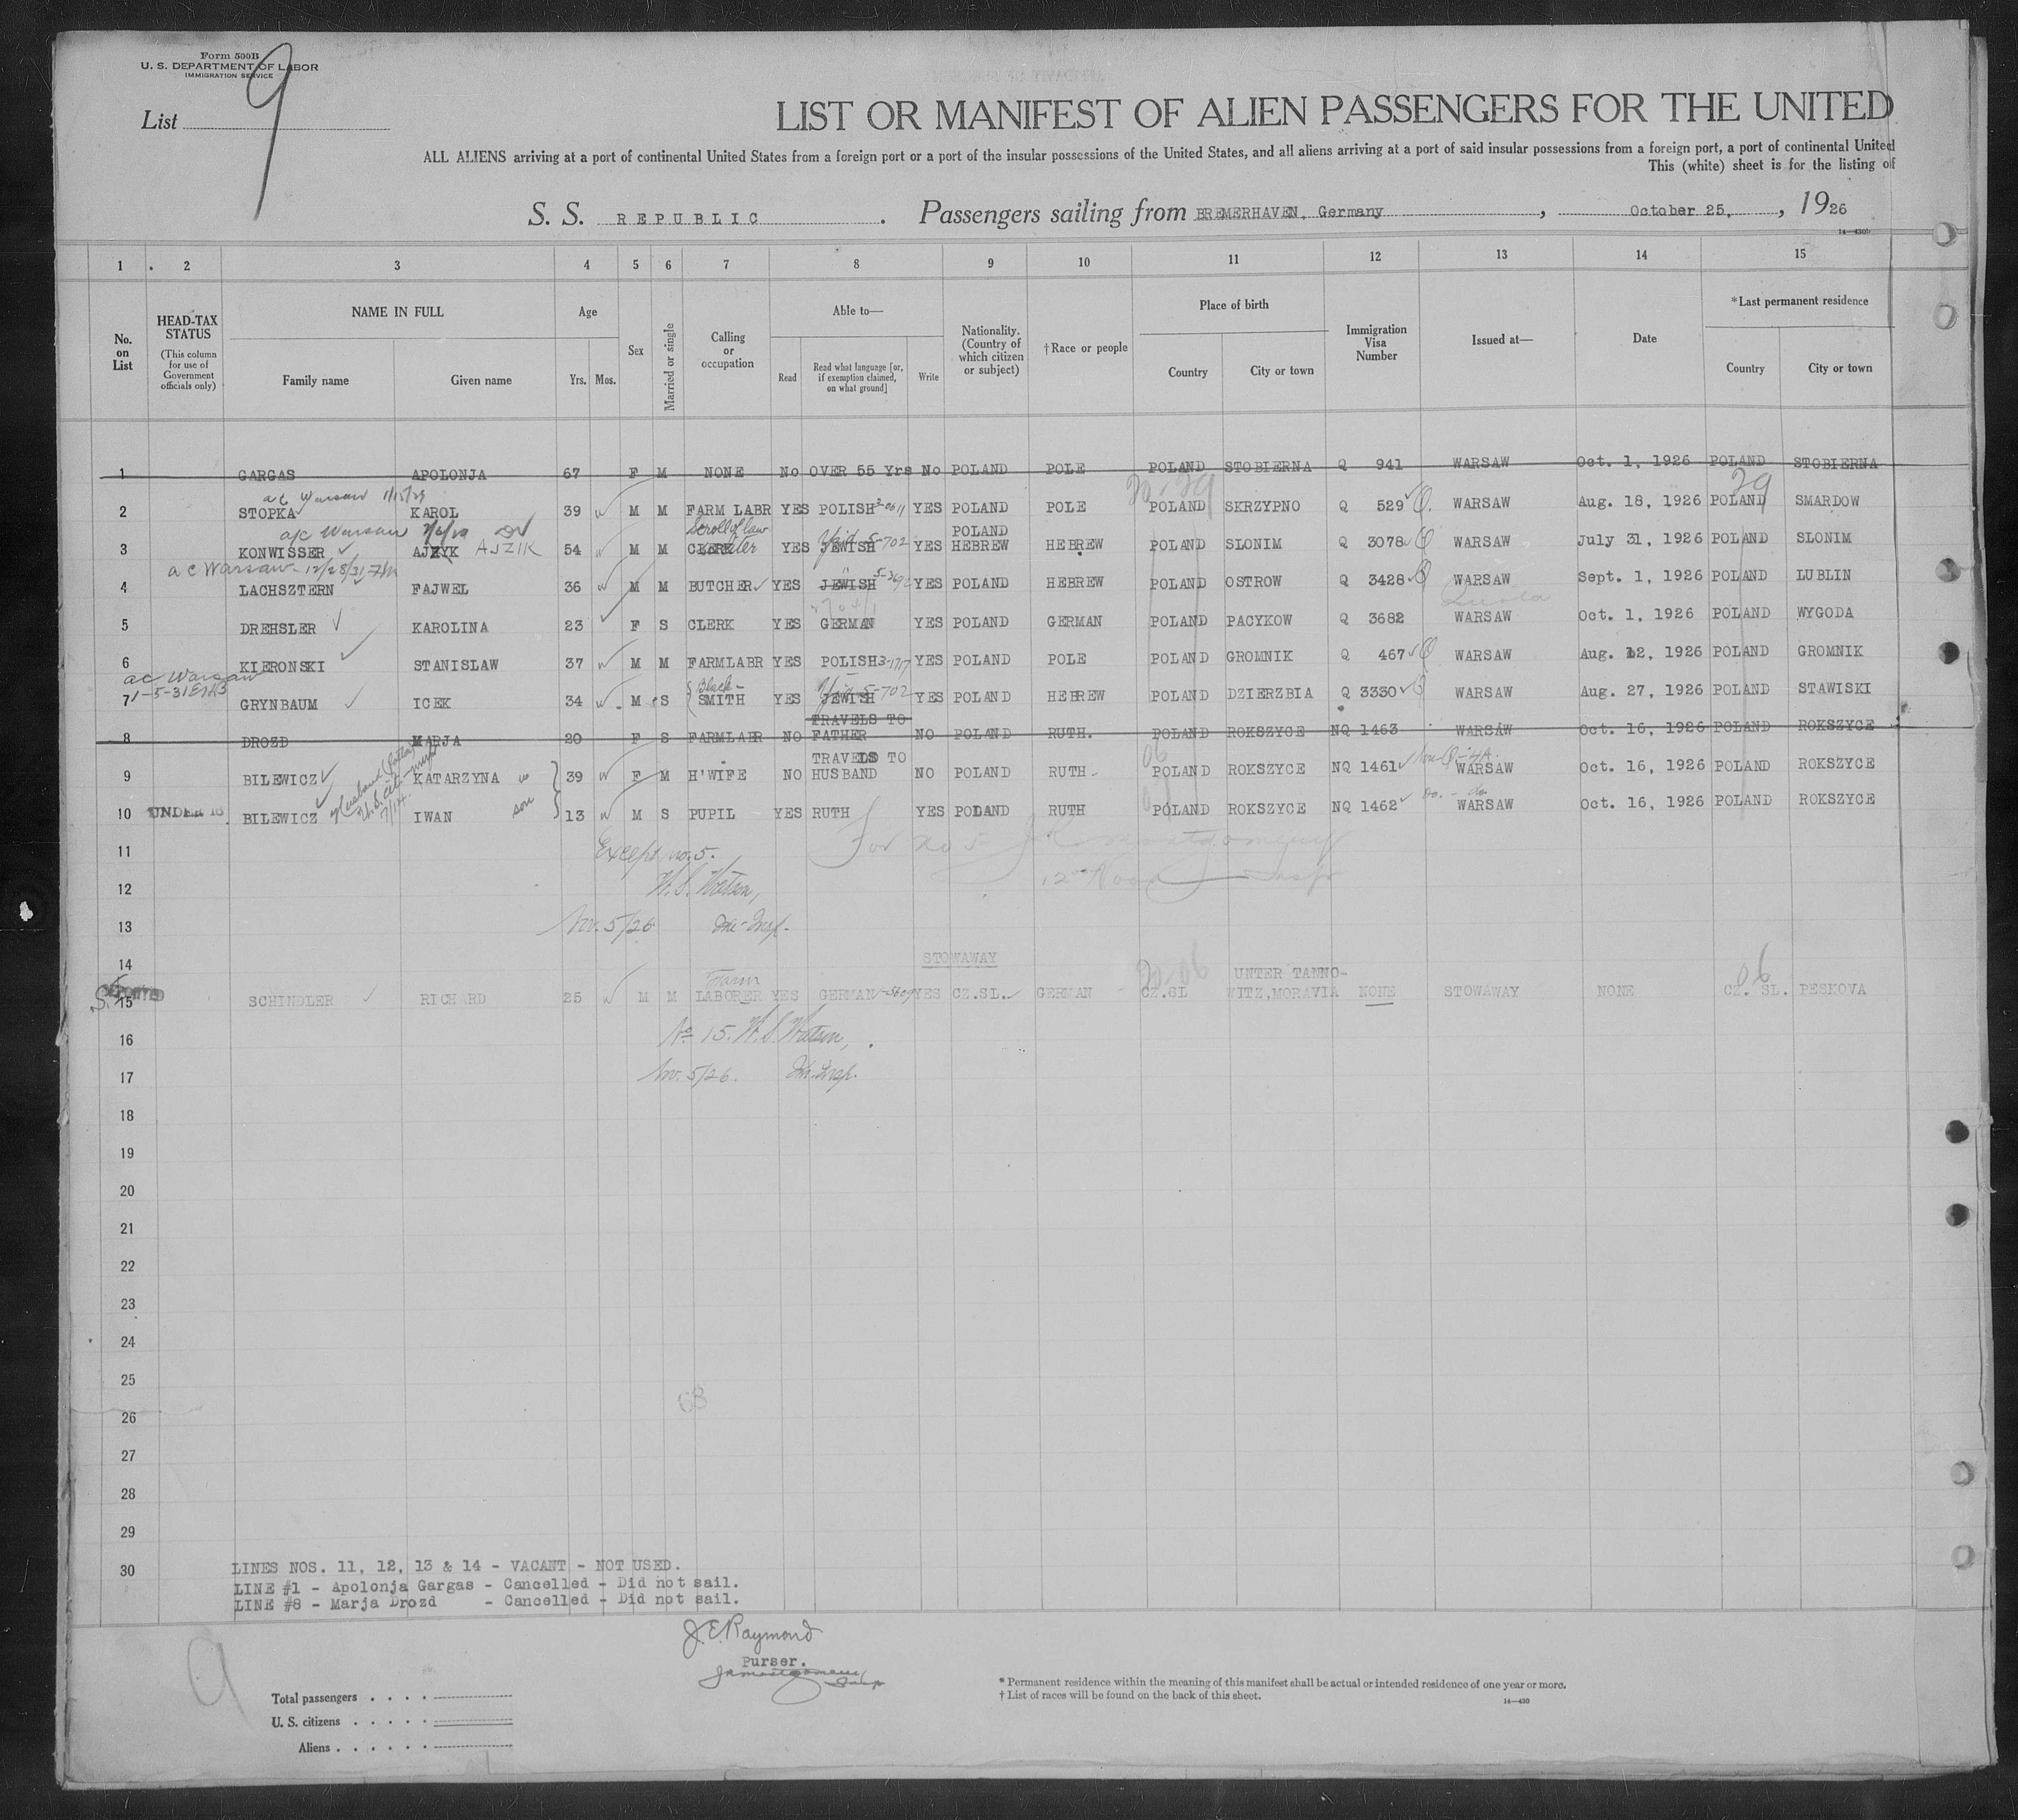 Form 500B
U. S. DEPARTMENT OF LABOR
IMMIGRATION SERVICE
List 9
LIST OR MANIFEST OF ALIEN PASSENGERS FOR THE UNITED
ALL ALIENS arriving at a port of continental United States from a foreign port or a port of the insular possessions of the United States, and all aliens arriving at a port of said insular possessions from a foreign port, a port of continental United
This (white) sheet is for the listing of
S. S. REPUBLIC. Passengers sailing from BREMERHAVEN, Germany, October 25, 1926
14—430b
1 2 3 4 5 6 7 8 9 10 11 12 13 14 15
No. on List
HEAD-TAX STATUS (This column for use of Government officials only)
NAME IN FULL Family name Given name
Age Yrs. Mos.
Sex
Married or single
Calling or occupation
Able to— Read Read what language [or, if exemption claimed, on what ground] Write
Nationality. (Country of which citizen or subject)
†Race or people
Place of birth Country City or town
Immigration Visa Number
Issued at—
Date
*Last permanent residence Country City or town
1 GARGAS APOLONJA 67 F M NONE No OVER 55 Yrs No POLAND POLE POLAND STOBIERNA Q 941 WARSAW Oct. 1, 1926 POLAND STOBIERNA
a/c Warsaw 1/15/29
2 STOPKA KAROL 39 M M FARM LABR YES POLISH YES POLAND POLE POLAND SKRZYPNO Q 529 WARSAW Aug. 18, 1926 POLAND SMARDOW
a/c Warsaw
3 KONWISSER AJZYK AJZIK 54 M M CLERK Scroll of law YES JEWISH Yid 5-702 YES POLAND HEBREW HEBREW POLAND SLONIM Q 3078 WARSAW July 31, 1926 POLAND SLONIM
a c Warsaw - 12/28/31
4 LACHSZTERN FAJWEL 36 M M BUTCHER YES JEWISH YES POLAND HEBREW POLAND OSTROW Q 3428 WARSAW Sept. 1, 1926 POLAND LUBLIN
5 DREHSLER KAROLINA 23 F S CLERK YES GERMAN YES POLAND GERMAN POLAND PACYKOW Q 3682 WARSAW Oct. 1, 1926 POLAND WYGODA
6 KIERONSKI STANISLAW 37 M M FARMLABR YES POLISH YES POLAND POLE POLAND GROMNIK Q 467 WARSAW Aug. 12, 1926 POLAND GROMNIK
ac Warsaw
7 GRYNBAUM ICEK 34 M S Black-SMITH YES JEWISH Yid 5-702 YES POLAND HEBREW POLAND DZIERZBIA Q 3330 WARSAW Aug. 27, 1926 POLAND STAWISKI
8 DROZD MARJA 20 F S FARMLABR NO TRAVELS TO FATHER NO POLAND RUTH. POLAND ROKSZYCE NQ 1463 WARSAW Oct. 16, 1926 POLAND ROKSZYCE
9 BILEWICZ KATARZYNA 39 F M H'WIFE NO TRAVELS TO HUSBAND NO POLAND RUTH POLAND ROKSZYCE NQ 1461 WARSAW Oct. 16, 1926 POLAND ROKSZYCE
10 UNDER 16 BILEWICZ IWAN son 13 M S PUPIL YES RUTH YES POLAND RUTH POLAND ROKSZYCE NQ 1462 WARSAW Oct. 16, 1926 POLAND ROKSZYCE
11 Except no. 5. For no 5 JR Montgomery
12 W. S. Watson,
13 Nov. 5/26
14 STOWAWAY
15 SCHINDLER RICHARD 25 M M Farm LABORER YES GERMAN YES CZ.SL. GERMAN CZ.SL UNTER TANNO-WITZ, MORAVIA NONE STOWAWAY NONE CZ. SL. PESKOVA
16 No 15. W. S. Watson,
17 Nov. 5/26.
18
19
20
21
22
23
24
25
68
26
27
28
29
30 LINES NOS. 11, 12, 13 & 14 - VACANT - NOT USED.
LINE #1 - Apolonja Gargas - Cancelled - Did not sail.
LINE #8 - Marja Drozd - Cancelled - Did not sail.
J. E. Raymond
Purser.
9
Total passengers
U. S. citizens
Aliens
* Permanent residence within the meaning of this manifest shall be actual or intended residence of one year or more.
† List of races will be found on the back of this sheet.
14—430